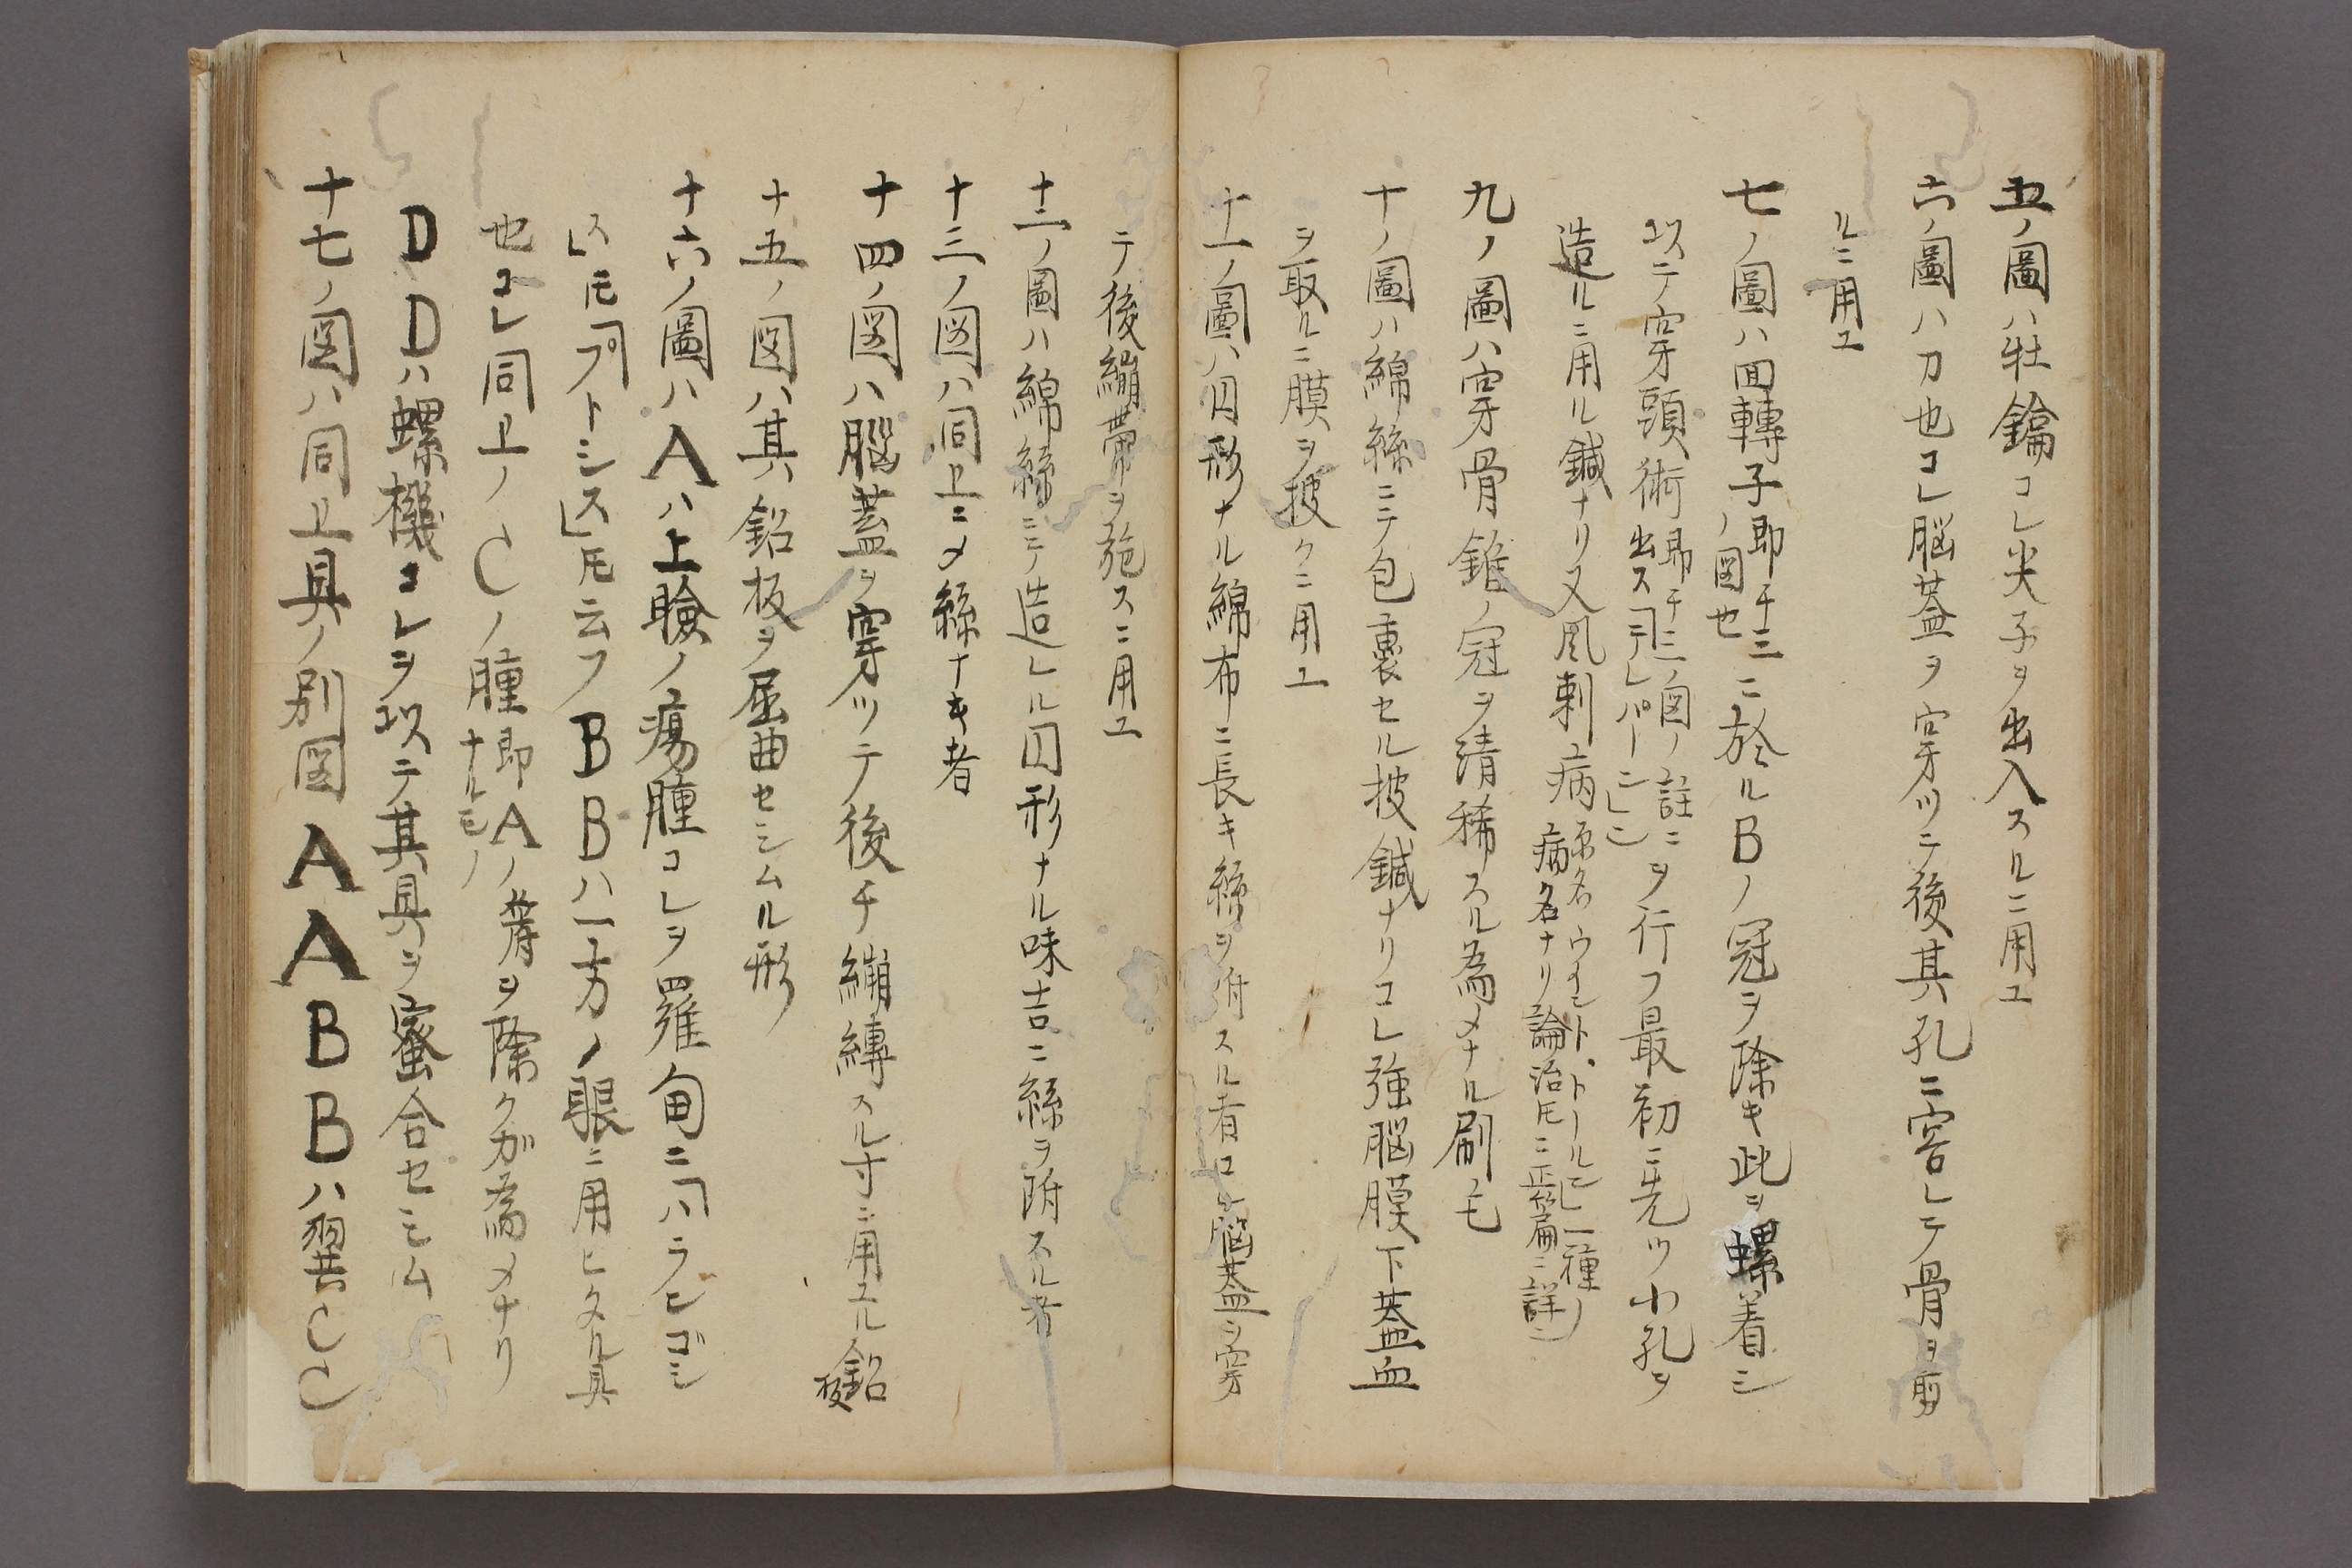 五ノ圖ハ牡鑰コレ尖子ヲ出入スルニ用ユ
六ノ圖ハ刀也コレ脳蓋ヲ穿ツニ後其孔ニ容レテ骨ヲ剪
ルニ用ユ
七ノ圖ハ回轉子即チ十三ノ図也ニ於ルBノ冠ヲ除キ此ヲ螺着シ
以テ穿頭術即チ二ノ図ノ註ニ出スヲ行フ最初ニ先ツ小孔ヲ
造ルニ用ル鍼ナリ又風刺病病名ナリ論治𪜈ニ正篇ニ詳
九ノ圖ハ穿骨錐ノ冠ヲ清稀スル為メナル刷毛
十ノ圖ハ綿絲ニテ包裹セル披鍼ナリコレ強脳膜下蓋血
ヲ取ルニ膜ヲ披クニ用ユ
十一ノ圖ハ円形ナル綿布ニ長キ絲ヲ附スル者コレ脳蓋ヲ穿
テ後繃帶ヲ施スニ用ユ
十二ノ圖ハ綿絲ニテ造レル円形ナル味吉ニ絲ヲ附スル者
十三ノ図ハ同上ニメ絲ナキ者
十四ノ図ハ脳蓋ヲ穿ツテ後チ繃縛スル寸ニ用ユル鉛板
十五ノ図ハ其鉛板ヲ屈曲セシムル形
十六ノ圖ハAハ上瞼ノ瘍腫コレヲ羅甸ニハラレゴシ
ス𪜈プトシス𪜈云フBBハ一方ノ眼ニ用ヒタル具
也コレ同上ノCノ腫即Aノ膏ナルモノヲ除クガ為メナリ
DDハ螺機コレヲ以テ其具ヲ蜜合セシム
十七ノ図ハ同上具ノ別図AABBハ翼CC